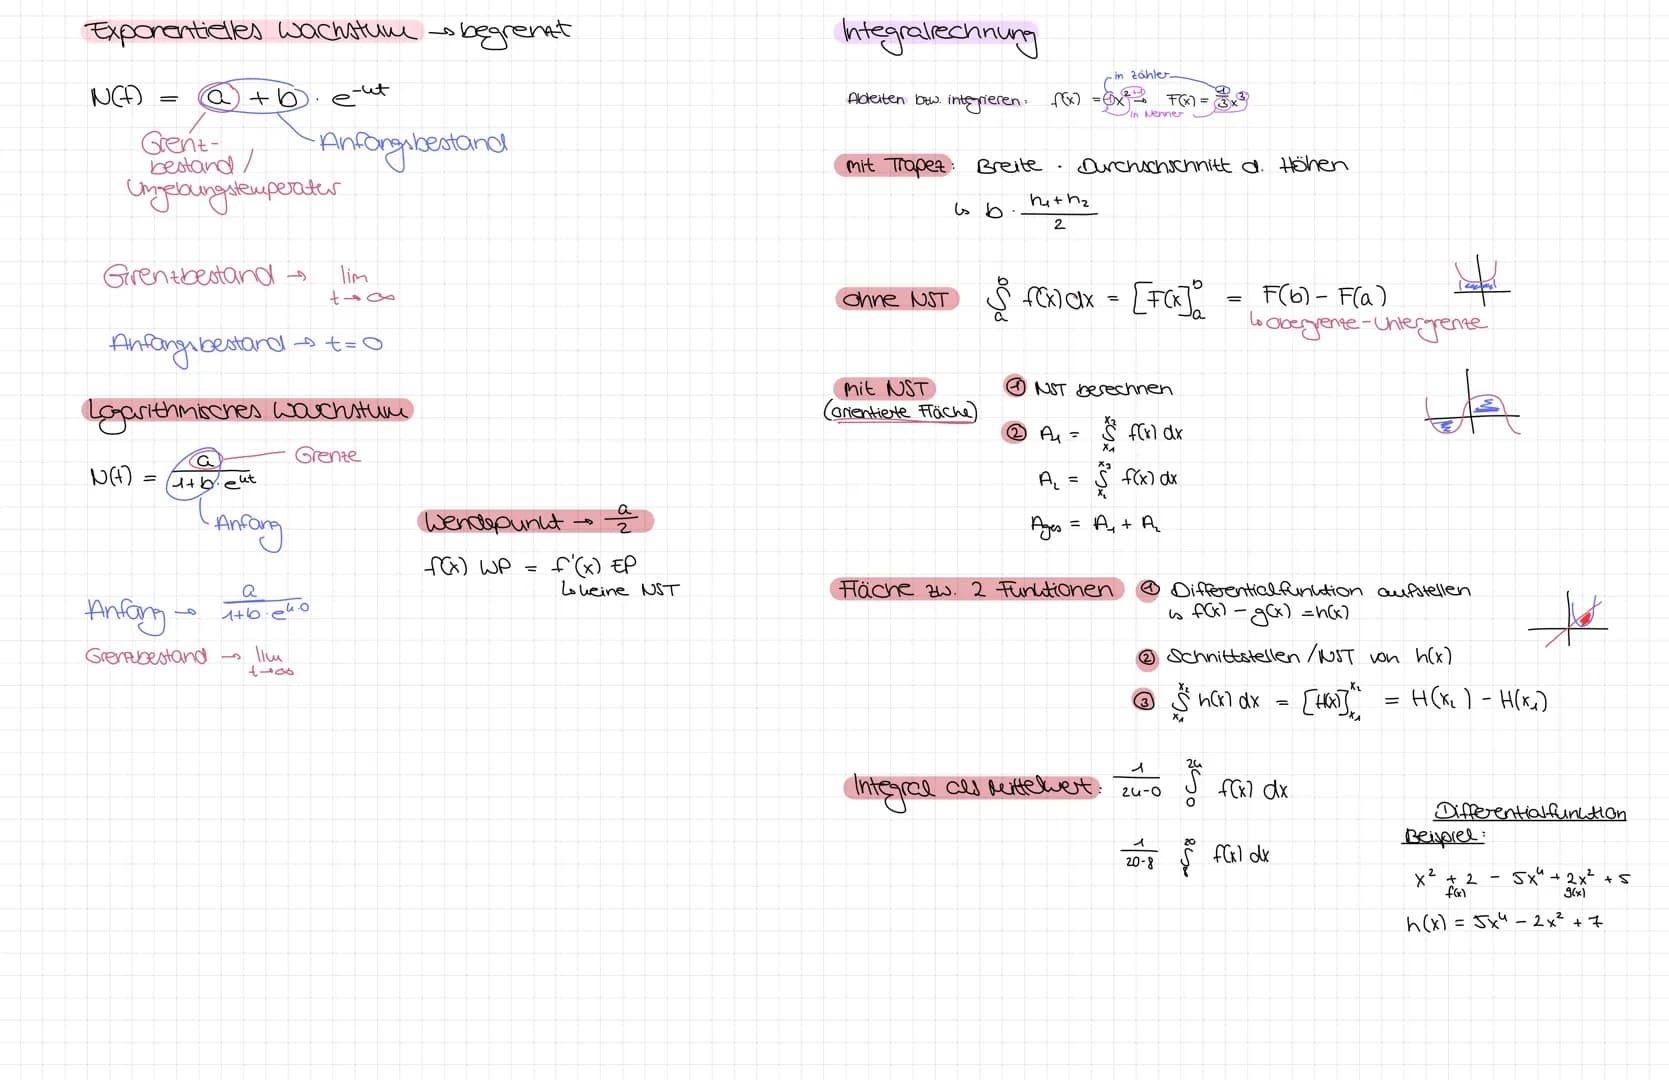 Exponentielles Wachstum → begrenzt
N(t) = a + b · e^-kt
Grenz-
bestand /
Umgebungstemperatur
Anfangsbestand
Grenzbestand → lim
t → ∞
Anfangsbestand → t = 0
Logarithmisches Wachstum
N(t) = a / 1+b·e^kt
Grenze
Anfang
Wendepunkt → a/2
f(x) WP = f'(x) EP
↳ keine NST
Anfang → a / 1+b·e^k·0
Grenzbestand → lim
t→∞
Integralrechnung
in Zähler
Ableiten bzw. integrieren: f(x) = 1x^2+1 → F(x) = 1/3 x^3
in Nenner
mit Trapez: Breite · Durchschschnitt d. Höhen
↳ b · h₁+h₂ / 2
ohne NST ∫_a^b f(x) dx = [F(x)]_a^b = F(b) - F(a)
↳ Obergrenze - Untergrenze
mit NST
(orientierte Fläche)
① NST berechnen
② A₁ = ∫_x₁^x₂ f(x) dx
A₂ = ∫_x₂^x₃ f(x) dx
Ages = A₁ + A₂
Fläche zw. 2 Funktionen ① Differentialfunktion aufstellen
↳ f(x) - g(x) = h(x)
② Schnittstellen / NST von h(x)
③ ∫_x₁^x₂ h(x) dx = [H(x)]_x₁^x₂ = H(x₂) - H(x₁)
Integral als Mittelwert: 1/24-0 ∫_0^24 f(x) dx
1/20-8 ∫_8^20 f(x) dx
Differentialfunktion
Beispiel:
x² + 2 - 5x⁴ + 2x² + 5
f(x) g(x)
h(x) = 5x⁴ - 2x² + 7